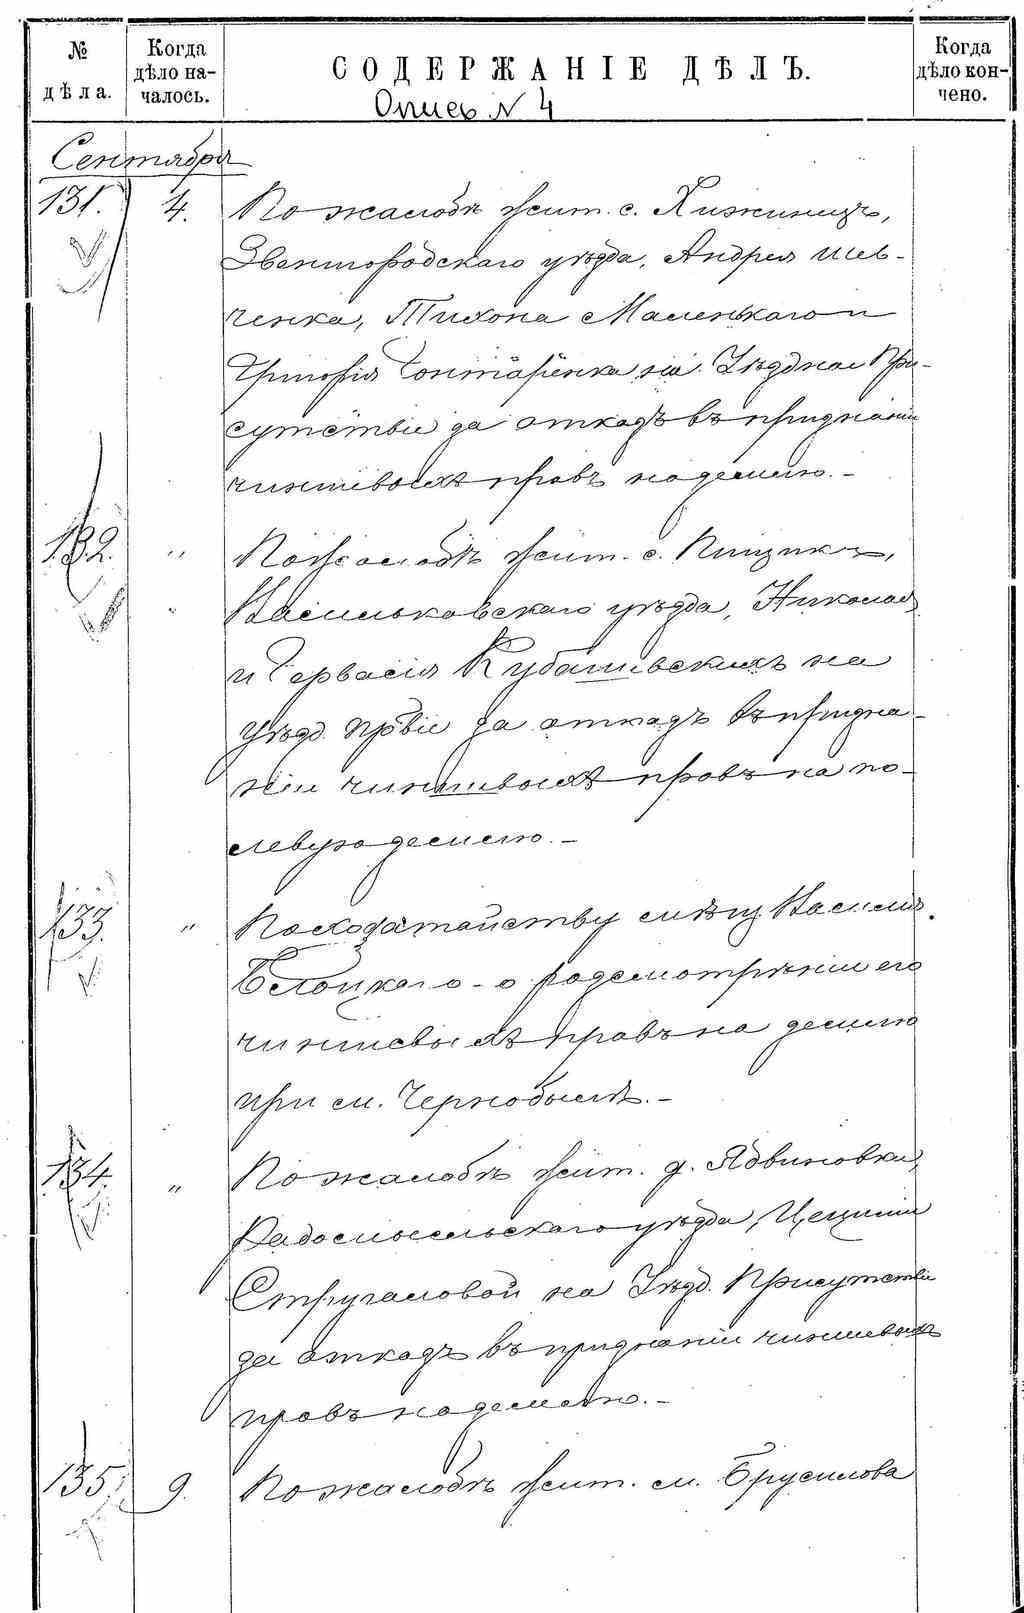 № дѣла.
Когда дѣло началось.
СОДЕРЖАНІЕ ДѢЛЪ.
Когда дѣло кончено.
Опись N 4
Сентября
131. 4. По жалобѣ жит. с. Хижинцъ,
Звенигородскаго уѣзда, Андрея Шев-
ченка, Тихона Маленькаго и
Григорія Гонтаренка на Уѣздное При-
сутствіе за отказъ въ признаніи
чиншевыхъ правъ на землю. –
132. " По жалобѣ жит. с. Пищикъ,
" Васильковскаго уѣзда, Николая
и Гервасія Кубашевскихъ на
уѣзд. пр̃віе за отказъ въ призна-
ніи чиншевыхъ правъ на по-
левую землю. –
133. " По ходатайству мѣщ. Василія
Белоцкаго – о разсмотрѣніи его
чиншевыхъ правъ на землю
при м. Чернобылѣ. –
134. " По жалобѣ жит. д. Ядвиновки,
Радомысльскаго уѣзда, Цециліи
Стругаловой на Уѣзд. Присутствіе
за отказъ въ признаніи чиншевыхъ
правъ на землю. –
135. 9. По жалобѣ жит. м. Брусилова